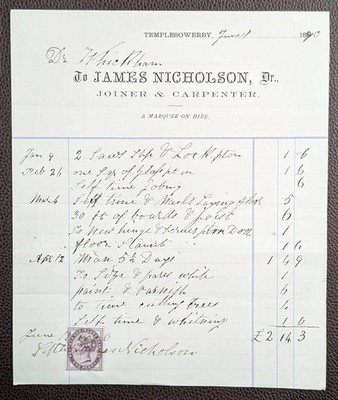 TEMPLESOWERBY, June 1 1890
Dr Whickham
To JAMES NICHOLSON, Dr.,
JOINER & CARPENTER.
A MARQUEE ON HIRE.
Jan 9 2 Saws & Lock 1 6
Feb 26 one of glass put in 1 6
Self time 6
March Self time & Nails Laying floor 5
30 ft of boards & 6
To New hinge & on Door 1
floor 1 6
Apr 12 Man 5½ Days 1 4 9
To Size & pares white 1
paint, & varnish 6
to time cutting trees 4
Self time & whitning 1 6
£2 14 3
June
Nicholson